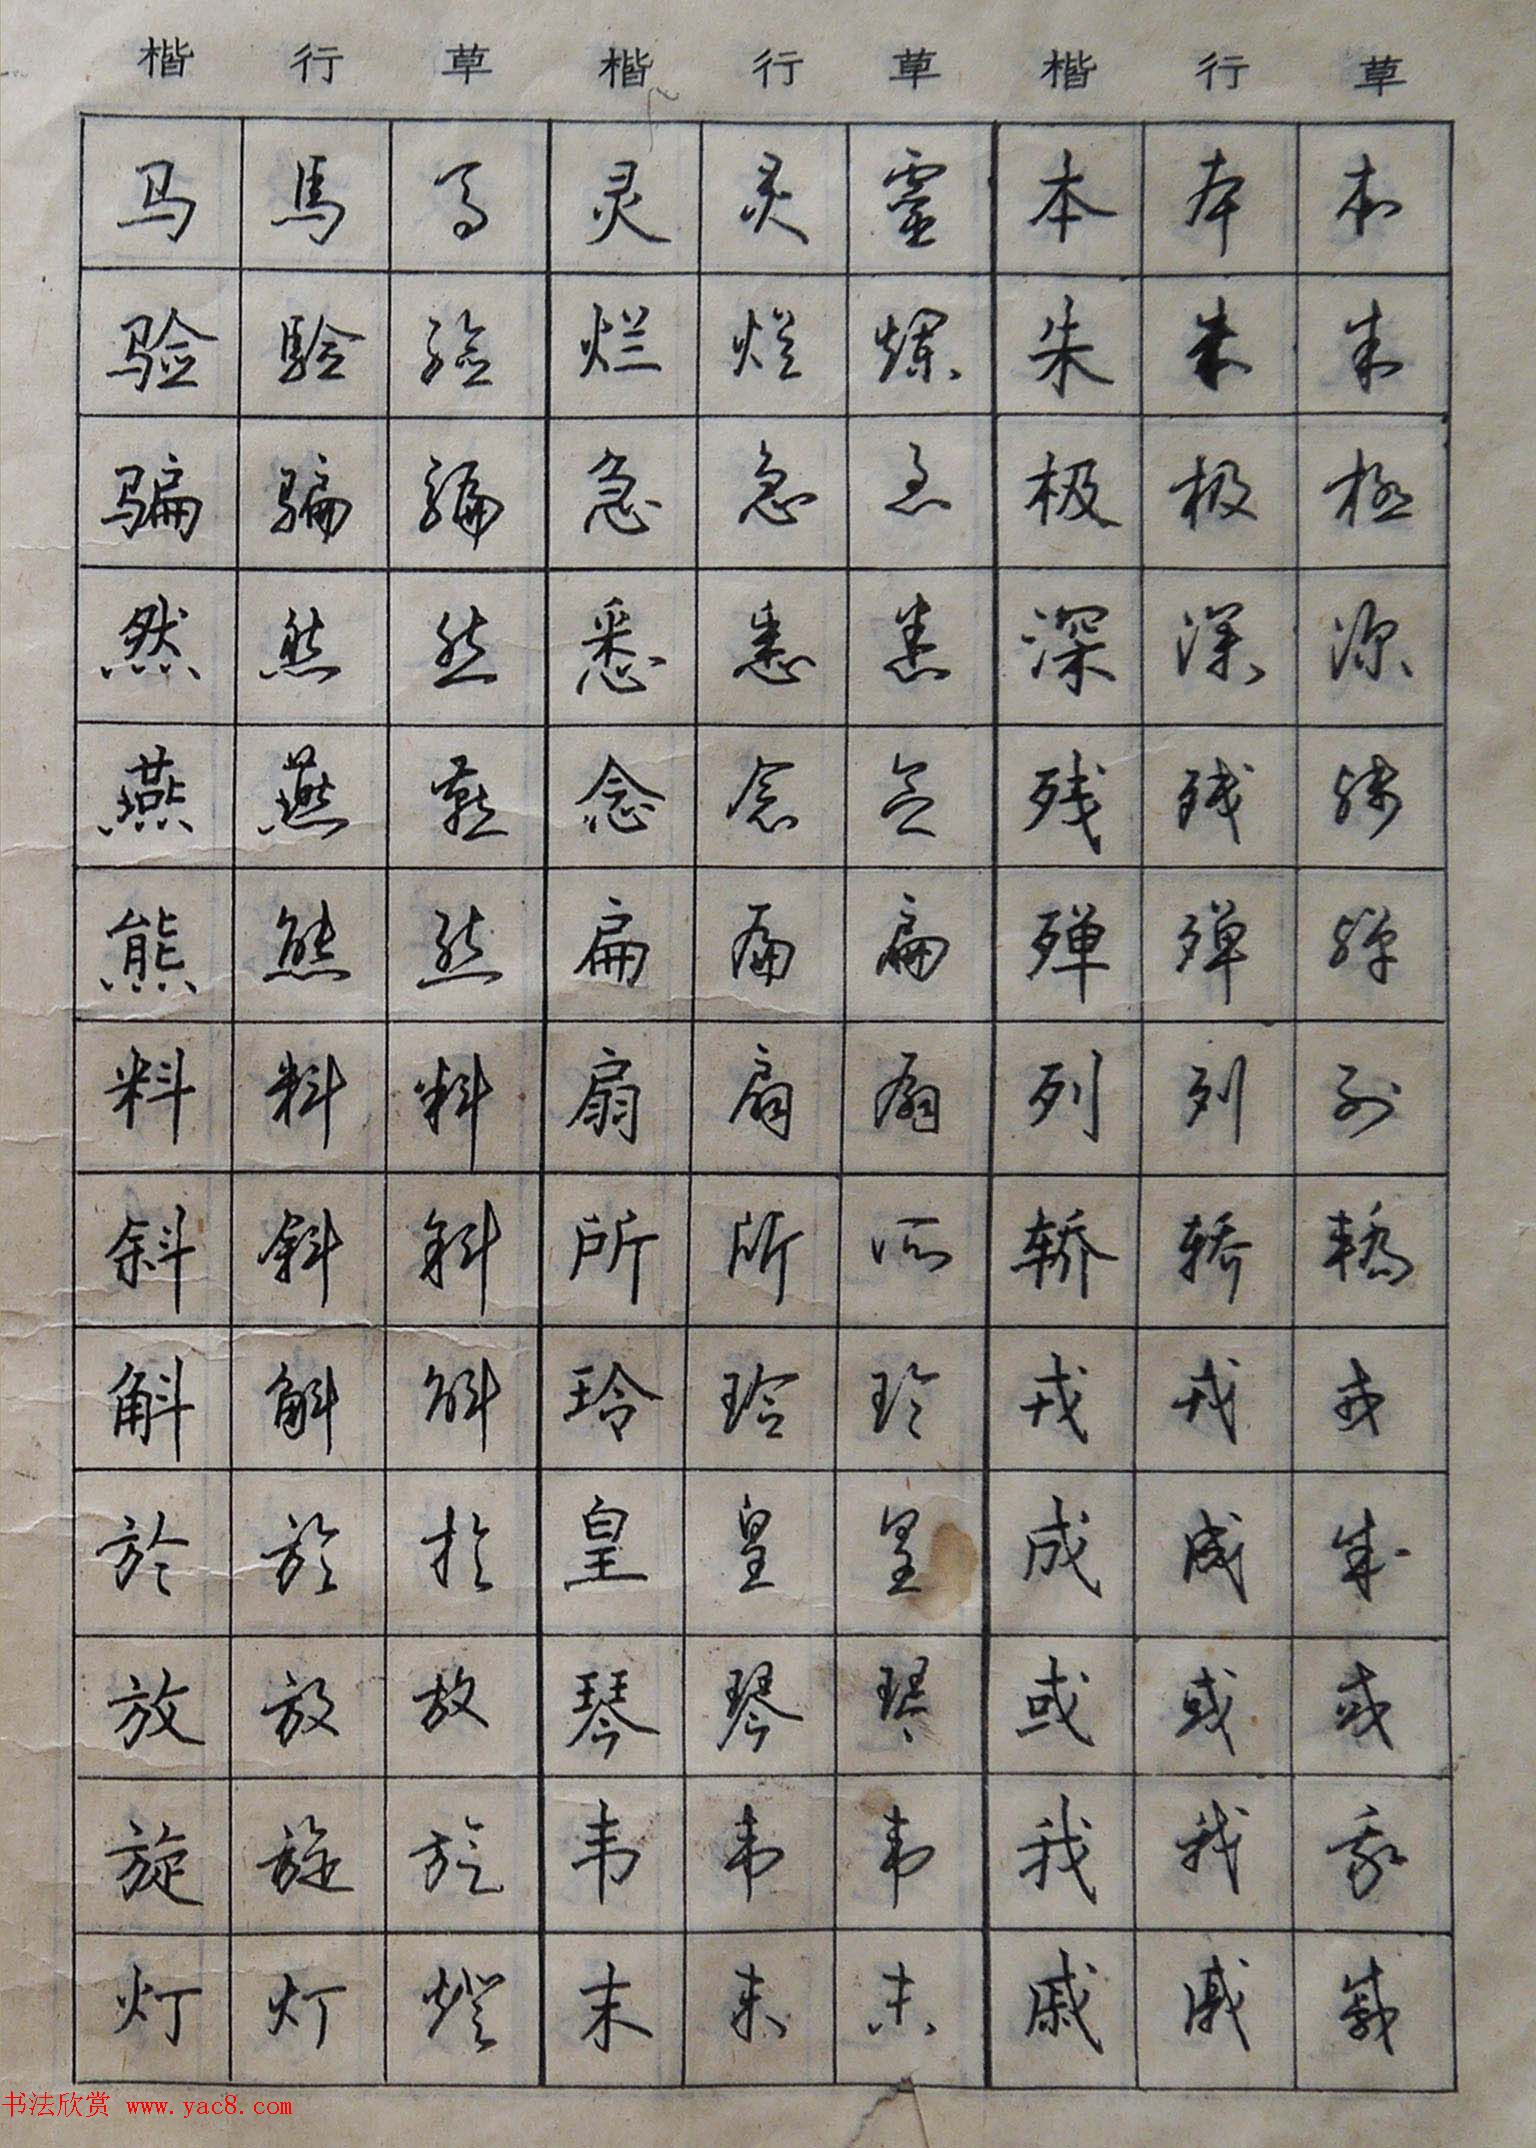 楷 行 草 楷 行 草 楷 行 草
马 馬 马 灵 灵 靈 本 本 本
验 驗 验 烂 烂 爛 朱 朱 朱
骗 骗 骗 急 急 急 极 极 極
然 然 然 悉 悉 悉 深 深 深
燕 燕 燕 念 念 念 残 残 残
熊 熊 熊 扁 扁 扁 殚 殚 殚
料 料 料 扇 扇 扇 列 列 列
斜 斜 斜 所 所 所 轿 轿 轎
斛 斛 斛 玲 玲 玲 戎 戎 戎
於 於 於 皇 皇 皇 成 成 成
放 放 放 琴 琴 琴 或 或 或
旋 旋 旋 韦 韦 韦 我 我 我
灯 灯 燈 末 末 末 戚 戚 戚
书法欣赏 www.yac8.com